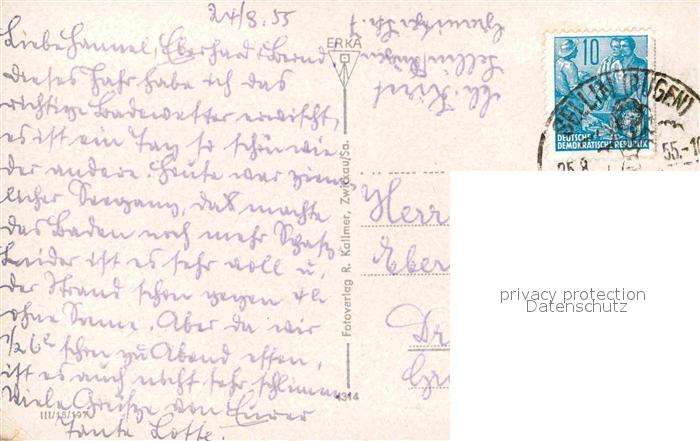 24/8.55
Liebe Hannel, Eberhard u. Bernd
dieses Jahr habe ich das
richtige Badewetter erwischt,
es ist ein Tag so schön wie
der andere. Heute war ziem-
licher Seegang, das machte
das Baden noch mehr Spaß
Leider ist es sehr voll u.
der Strand schon gegen 4h
ohne Sonne. Aber da wir
1/2 6h schon zu Abend essen,
ist es auch nicht sehr schlimm
Viele Grüße von Eurer
Tante Lotte.
III/18/197
ERKA
Fotoverlag R. Kallmer, Zwickau/Sa.
4314
Sellin/Rügen
10
DEUTSCHE
DEMOKRATISCHE REPUBLIK
SELLIN (RÜGEN)
25.8.55.-10
Herr
Eber
Dr
privacy protection
Datenschutz